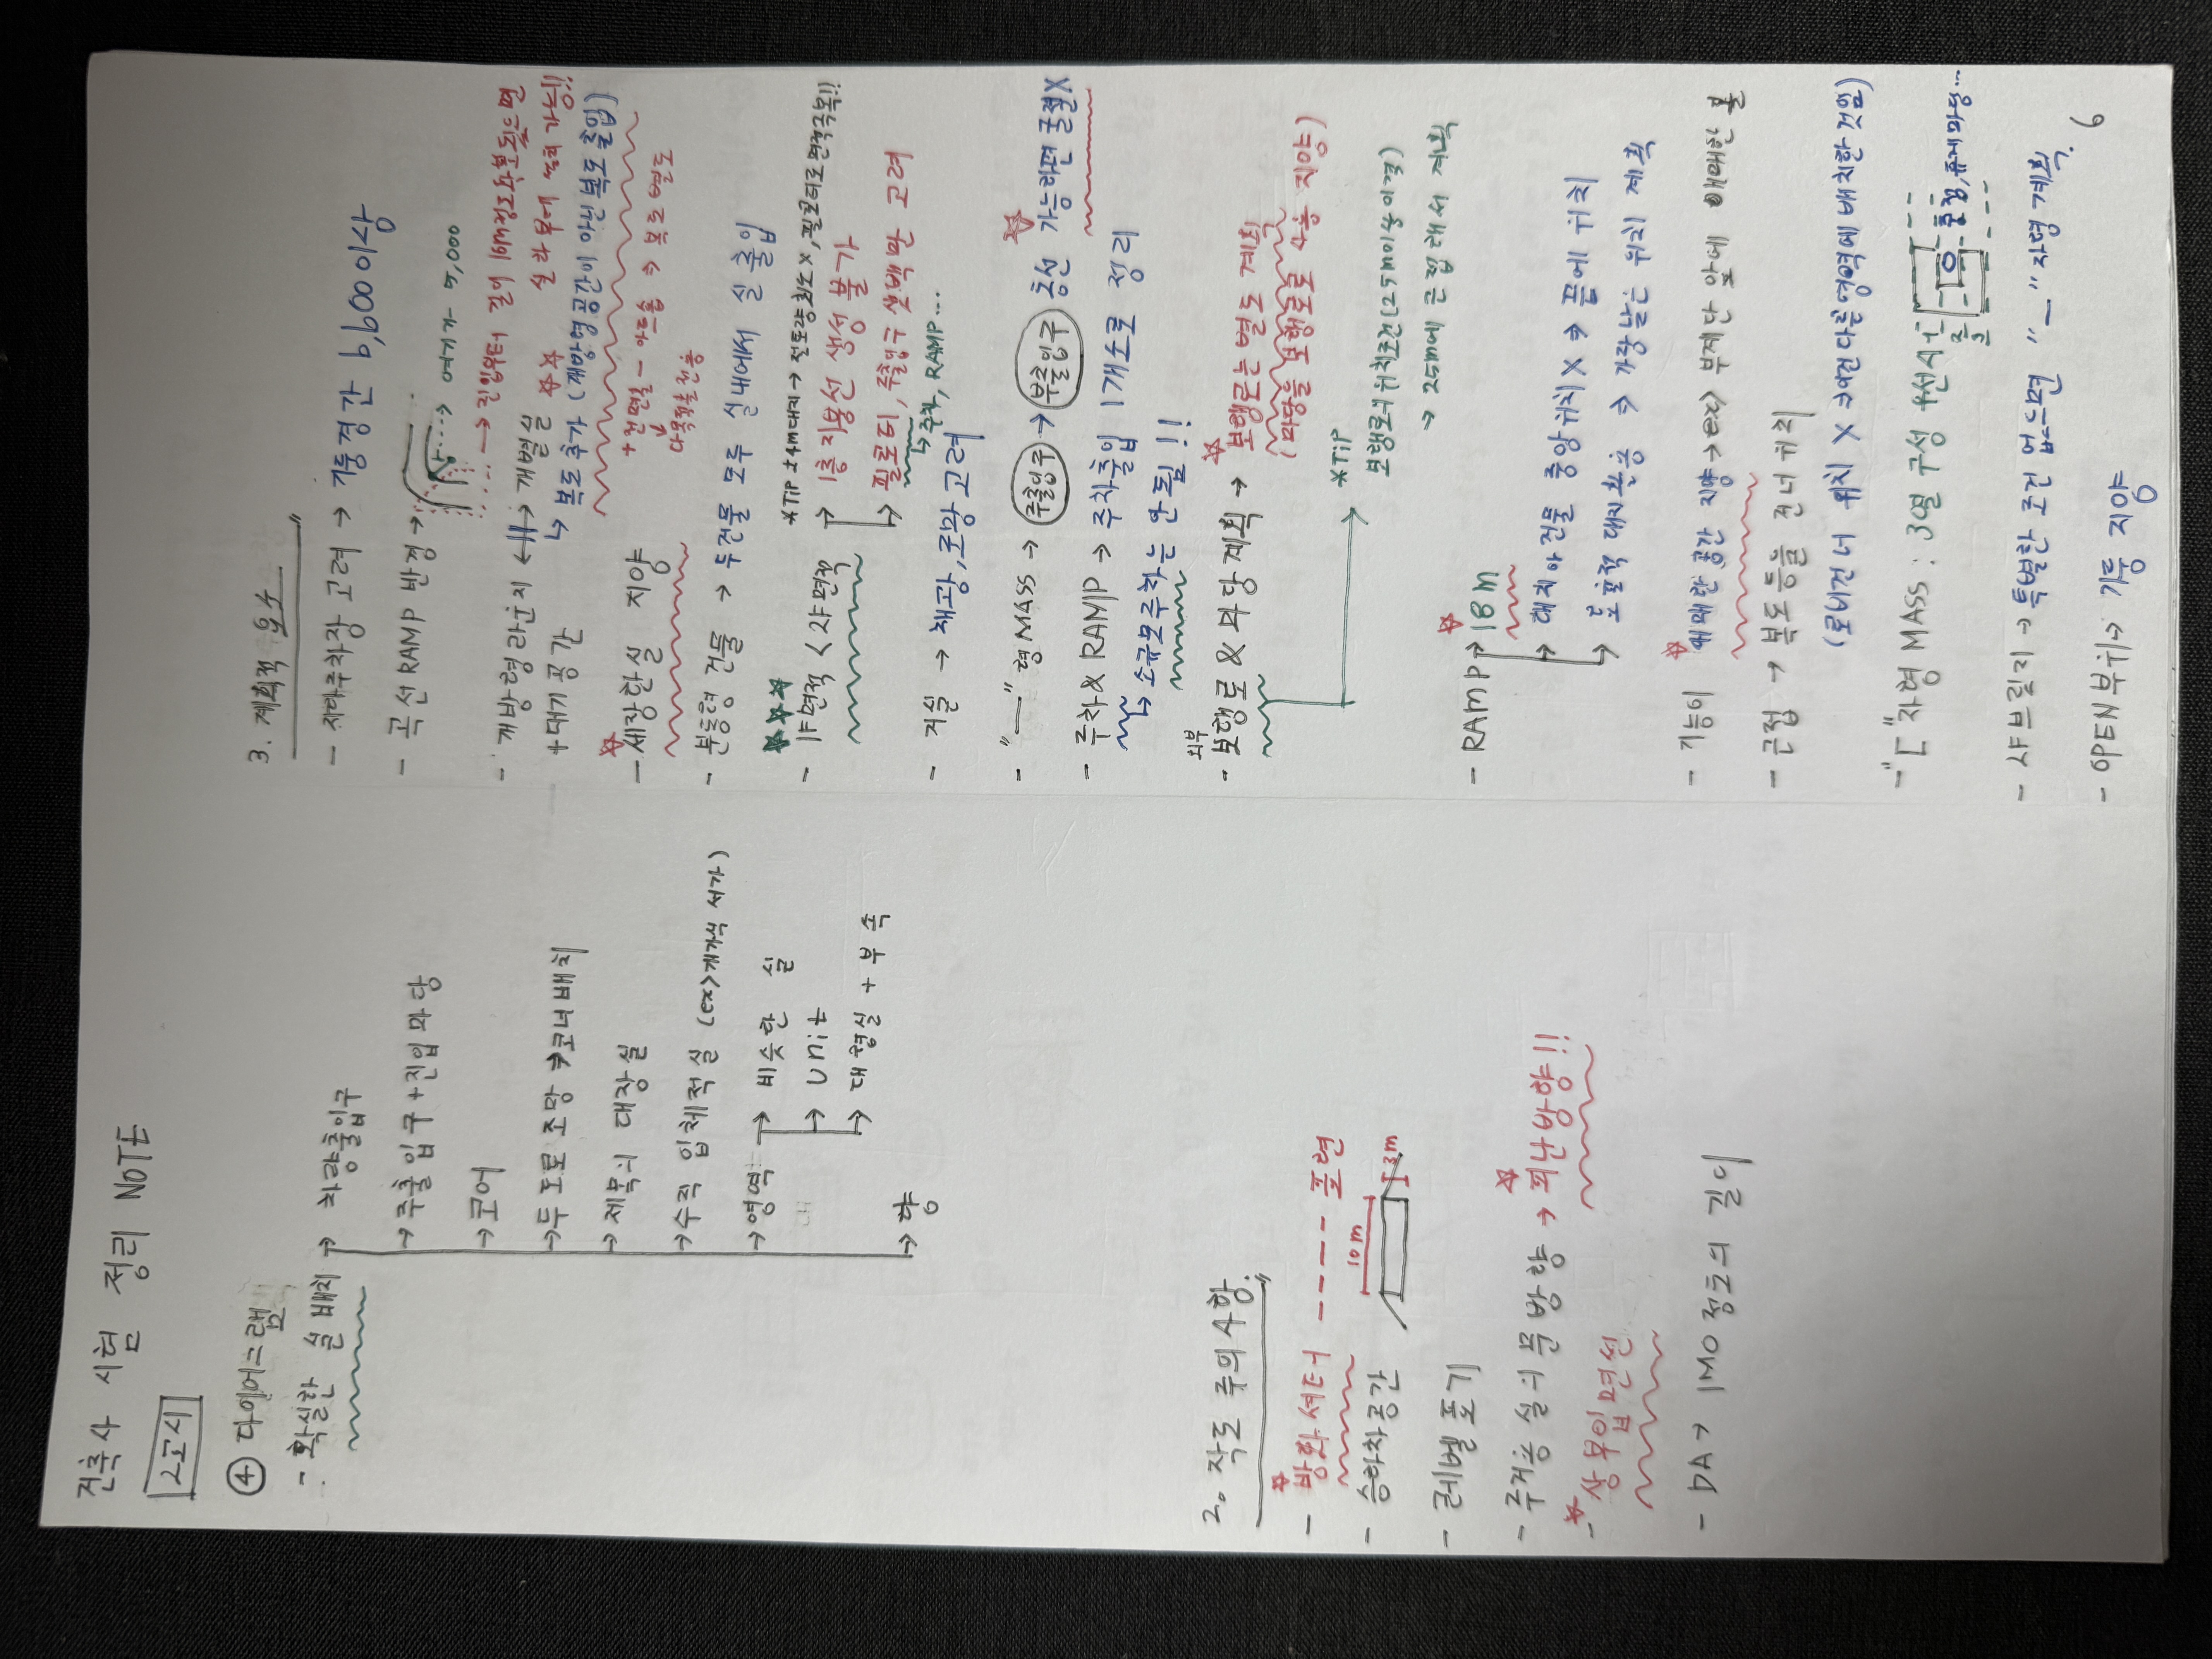 건축사 시험 정리 NOTE
2교시
④ 다이어그램
- 확실한 실 배치 → 차량출입구
→ 주출입구+진입마당
→ 코어
→ 두 도로 조망 → 코너배치
→ 제목의 대장실
→ 수직 입체적실 (ex>개가식 서가)
→ 영역 → 비슷한 실
→ Unit
→ 대형실 + 부속
→ 향
2. 작도 주의사항."
☆- 방화셔터 ----- 표현
- 승하차공간 10m 3m
- 레벨 표기
- 주거용 실의 문 방향 → ☆ 피난방향!!
☆- 상부입면선
- DA → IMO 정도의 길이
3. 계획적 요소"
- 지하주차장 고려 → 기둥경간 6,600이상
- 곡선RAMP 반경 → ····> 여기가- 5,000
- 개방형라운지 <-||-> 개별실 ☆☆
+대기공간
→ 진입부터 길이 10M정도확보되면 실 라운지 설치 가능!!
↳ 복도 추가 (개방형공간이 아닌 복도 출입)
☆- 세장한실 지양
+전면실 - 아트홀 → 복도 별도
다목적홀전용
- 분동형 건물 → 두건물 모두 실내에서 실 출입
☆☆☆
- 1F면적 < 2F면적 → 1층 지용선 생성 불가
→ 필로티, 주출입구 셋백만 고려
↳ 주차, RAMP...
- 거실 → 채광, 조망 고려
- "ㅡ" 형MASS → 주출입구 → 부출입구 ☆ 동선 가능하면 굴절X
- 주차&RAMP → 주차출입 1개소로 정리
↳ 소규모주차는 안됨!!
- 외부 보행로&마당계획 → ☆ 보행로는 별도 계획
(마당을 보행로로 사용 지양)
→ *TiP
보행로너비조건(2.5m이상 이격)
→ 2.5m에 근접해서 계획
- RAMP → ☆ 18m
→ 대지와 건물 중앙위치 X → 끝에 위치
→ 효율적 대지활용 → 가장낮은 위치 계획
- 기능이 ☆ 애매한 공간 지양 → ex> 부계단 앞에 애매한 홀
- 근접 → 복도등을 건너 위치
(로비건너 위치 X → 다른영역에 배치한것임)
- "ㄷ"자형 MASS : 3열 구성
중정, 휴게마당...
- 샤브릴지 → 특별한 조건 없으면 "ㅡ"자형 계획.
- OPEN부위 → 기둥 지양
6